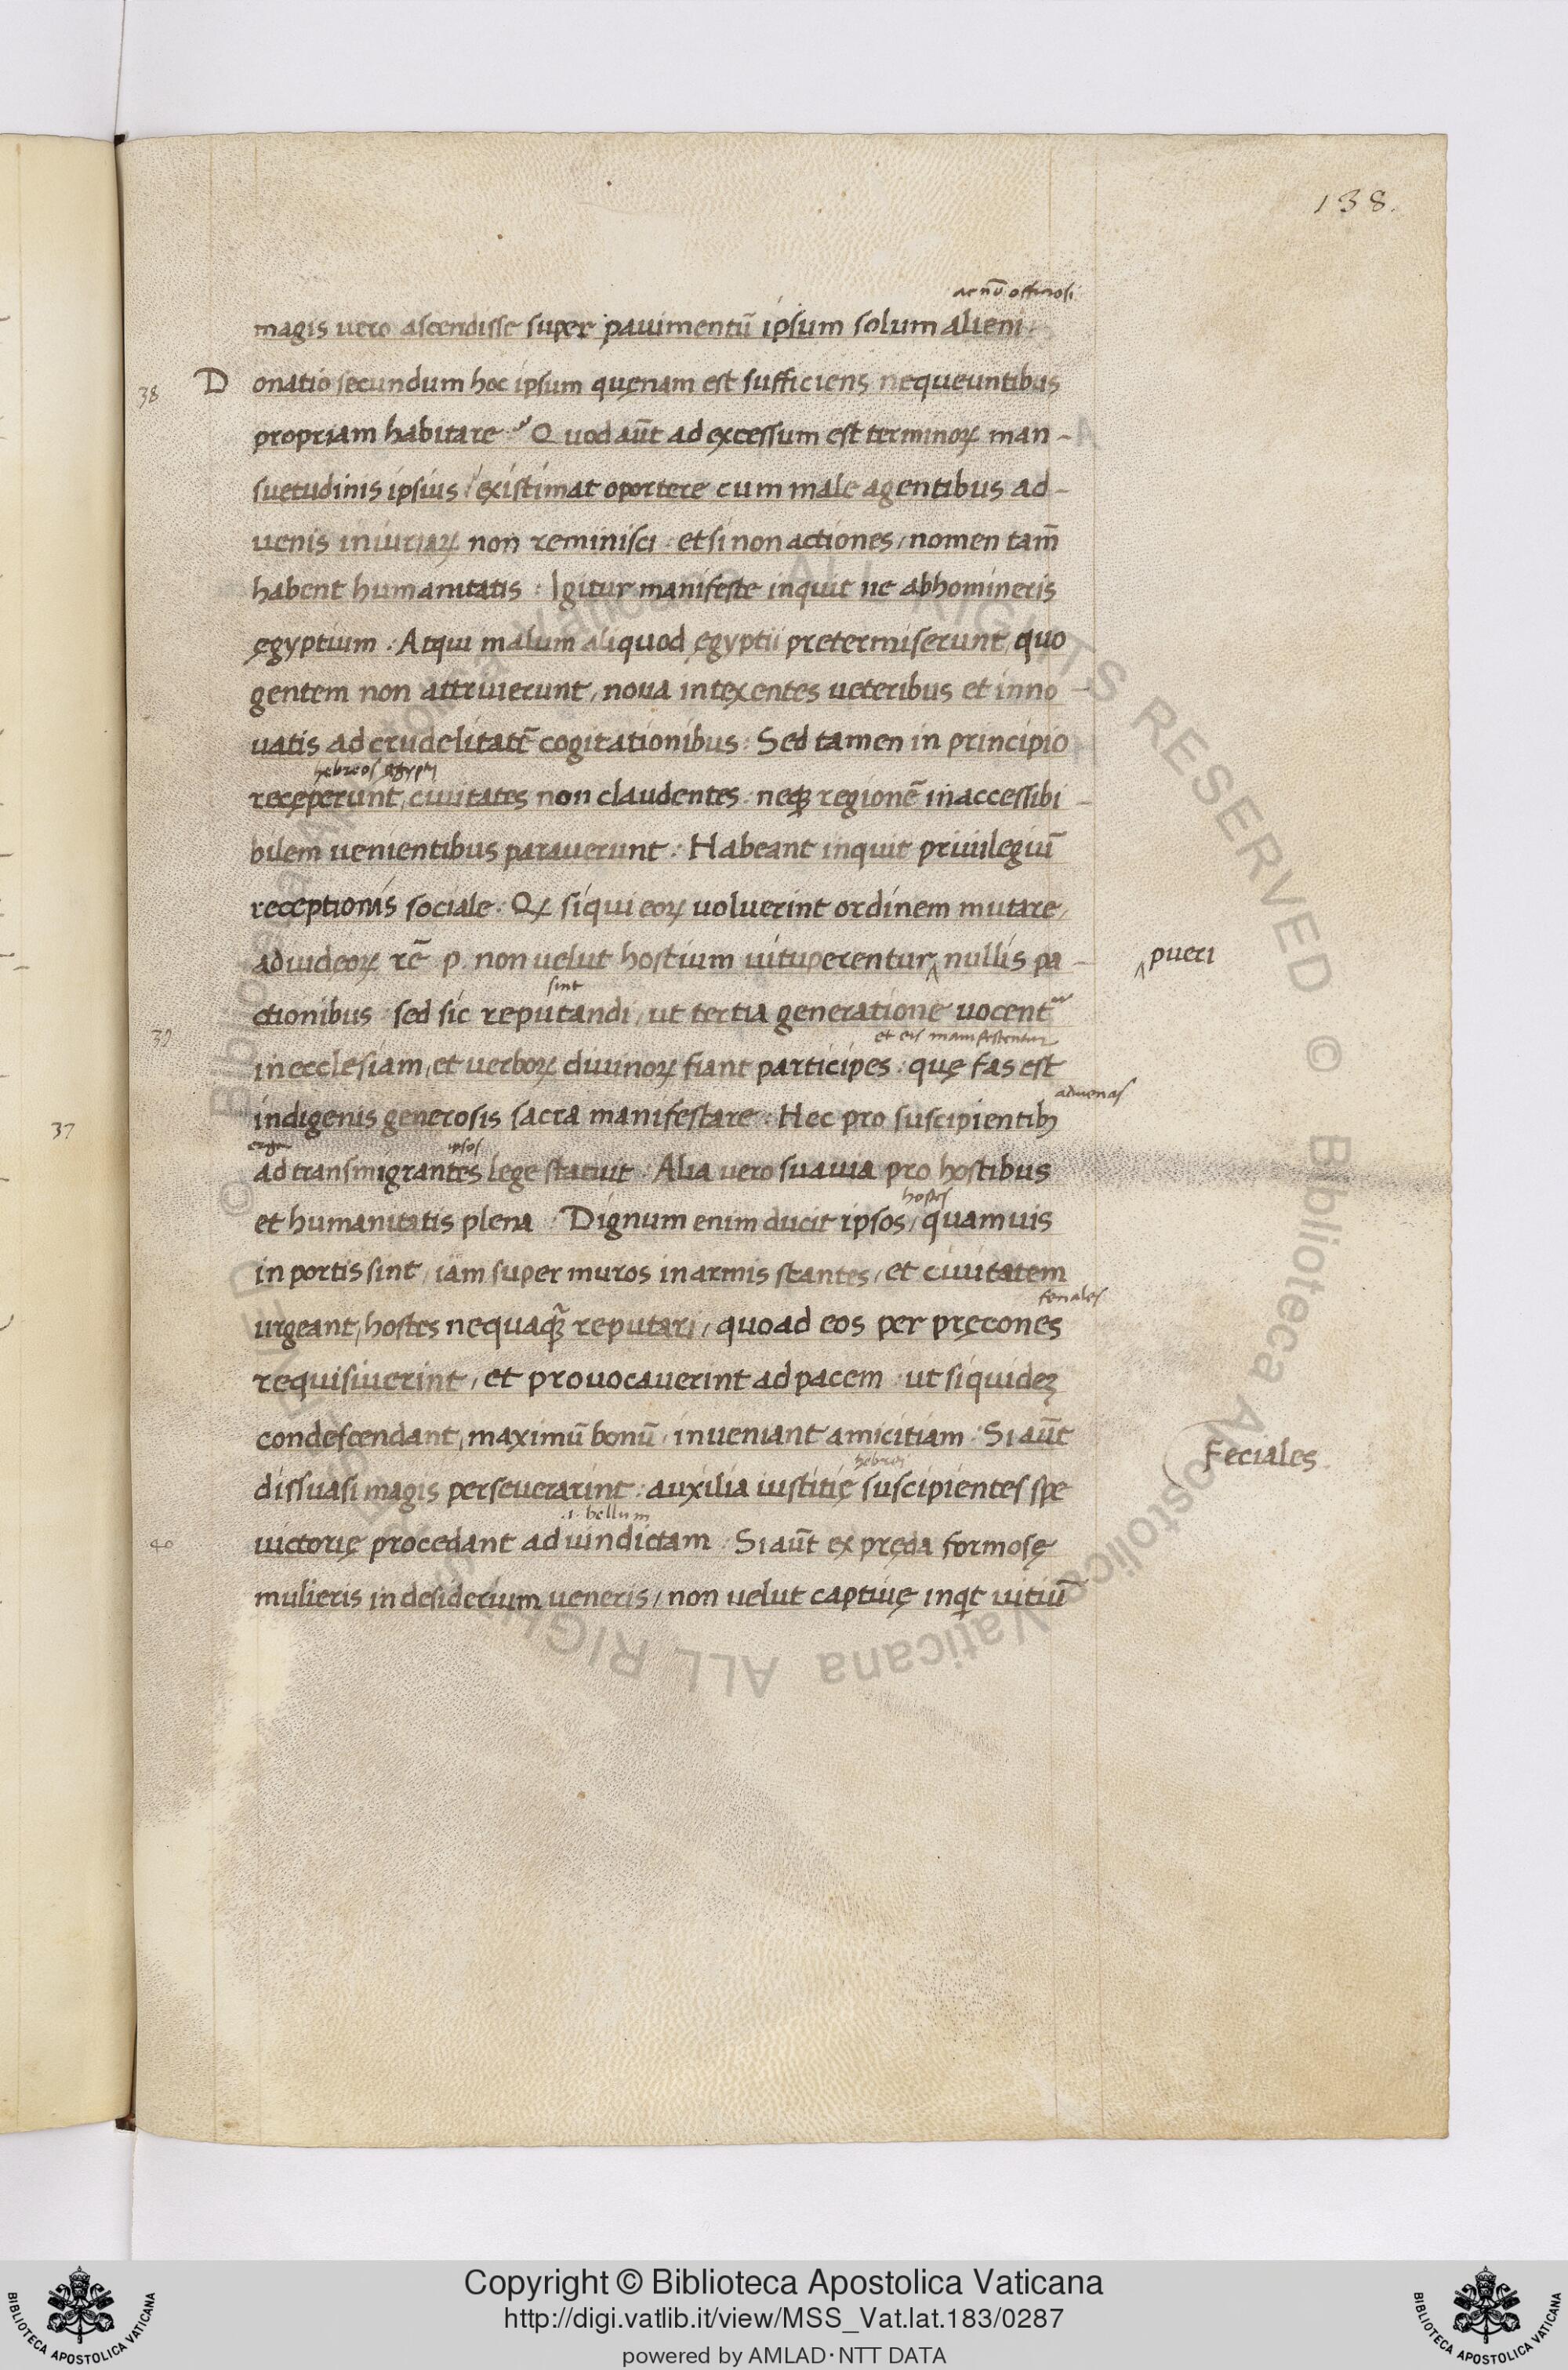 138.
ac nõ officiosi
magis uero ascendisse super pauimentũ ipsum solum alieni.
38 Donatio secundum hoc ipsum quęnam est sufficiens nequeuntibus
propriam habitare. Quod aũt ad excessum est terminoꝝ man-
suetudinis ipsius / existimat oportere cum male agentibus ad-
uenis iniuriaꝝ non reminisci : et si non actiones, nomen tam̃
habent humanitatis : Igitur manifeste inquit ne abhomineris
ęgyptium . Atqui malum aliquod ęgyptii pretermiserunt, quo
gentem non attriuierunt, noua intexentes ueteribus et inno-
uatis ad crudelitatẽ cogitationibus : Sed tamen in principio
hebreos ęgyptii
recęperunt, ciuitates non claudentes : neqꝫ regionẽ inaccessibi-
bilem uenientibus parauerunt : Habeant inquit priuilegiũ
receptionis sociale : Qꝫ siqui eoꝝ uoluerint ordinem mutare,
ad iudeoꝝ rẽ p. non uelut hostium uituperentur ^ nullis pa-
^ pueri
sint
ctionibus : sed sic reputandi, ut tertia generatione uocentᵘʳ
et eis manifestentur
39 in ecclesiam, et uerboꝝ diuinoꝝ fiant participes : quę fas est
aduenas
37 indigenis generosis sacra manifestare : Hec pro suscipientibꝫ
erga ipsos
ad transmigrantes lege statuit : Alia uero suauia pro hostibus
hostes
et humanitatis plena : Dignum enim ducit ipsos, quamuis
in portis sint, iam super muros in armis stantes, et ciuitatem
feciales
urgeant, hostes nequaqꝫ̃ reputari, quoad eos per pręcones
requisiuerint, et prouocauerint ad pacem : ut siquideꝫ
condescendant, maximũ bonũ, inueniant amicitiam : Si aũt
Feciales
hebrei
dissuasi magis perseuerarint : auxilia iustitię suscipientes spe
.i. bellum
40 uictorię procedant ad uindictam : Si aũt ex pręda formosę
mulieris in desiderium ueneris, non uelut captiuę inqt uitiũ
Copyright © Biblioteca Apostolica Vaticana
http://digi.vatlib.it/view/MSS_Vat.lat.183/0287
powered by AMLAD·NTT DATA
BIBLIOTECA APOSTOLICA VATICANA
BIBLIOTECA APOSTOLICA VATICANA
© Biblioteca Apostolica Vaticana ALL RIGHTS RESERVED © Biblioteca Apostolica Vaticana ALL RIGHTS RESERVED